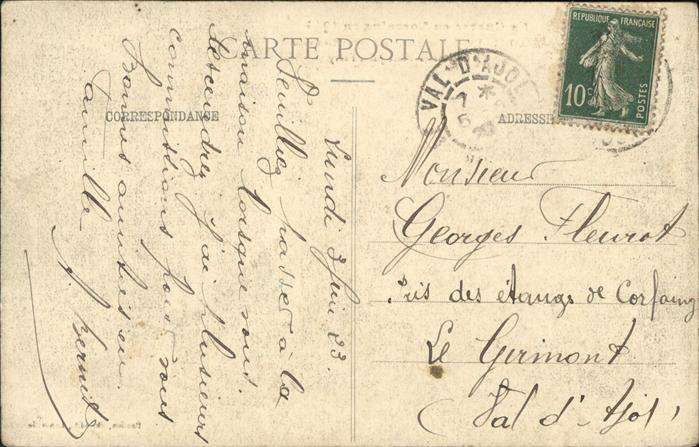 CARTE POSTALE
CORRESPONDANCE
ADRESSE
RÉPUBLIQUE FRANÇAISE
10c
POSTES
VAL-D'AJOL
7
Lundi 3 Juin 23.
Veuillez passer à la
maison lorsque vous
descendrez, j'ai plusieurs
commissions pour vous
Bonnes amitiés en
famille
Monsieur
Georges Fleurot
Près des étangs de Corfaing
Le Girmont
Val d'Ajol